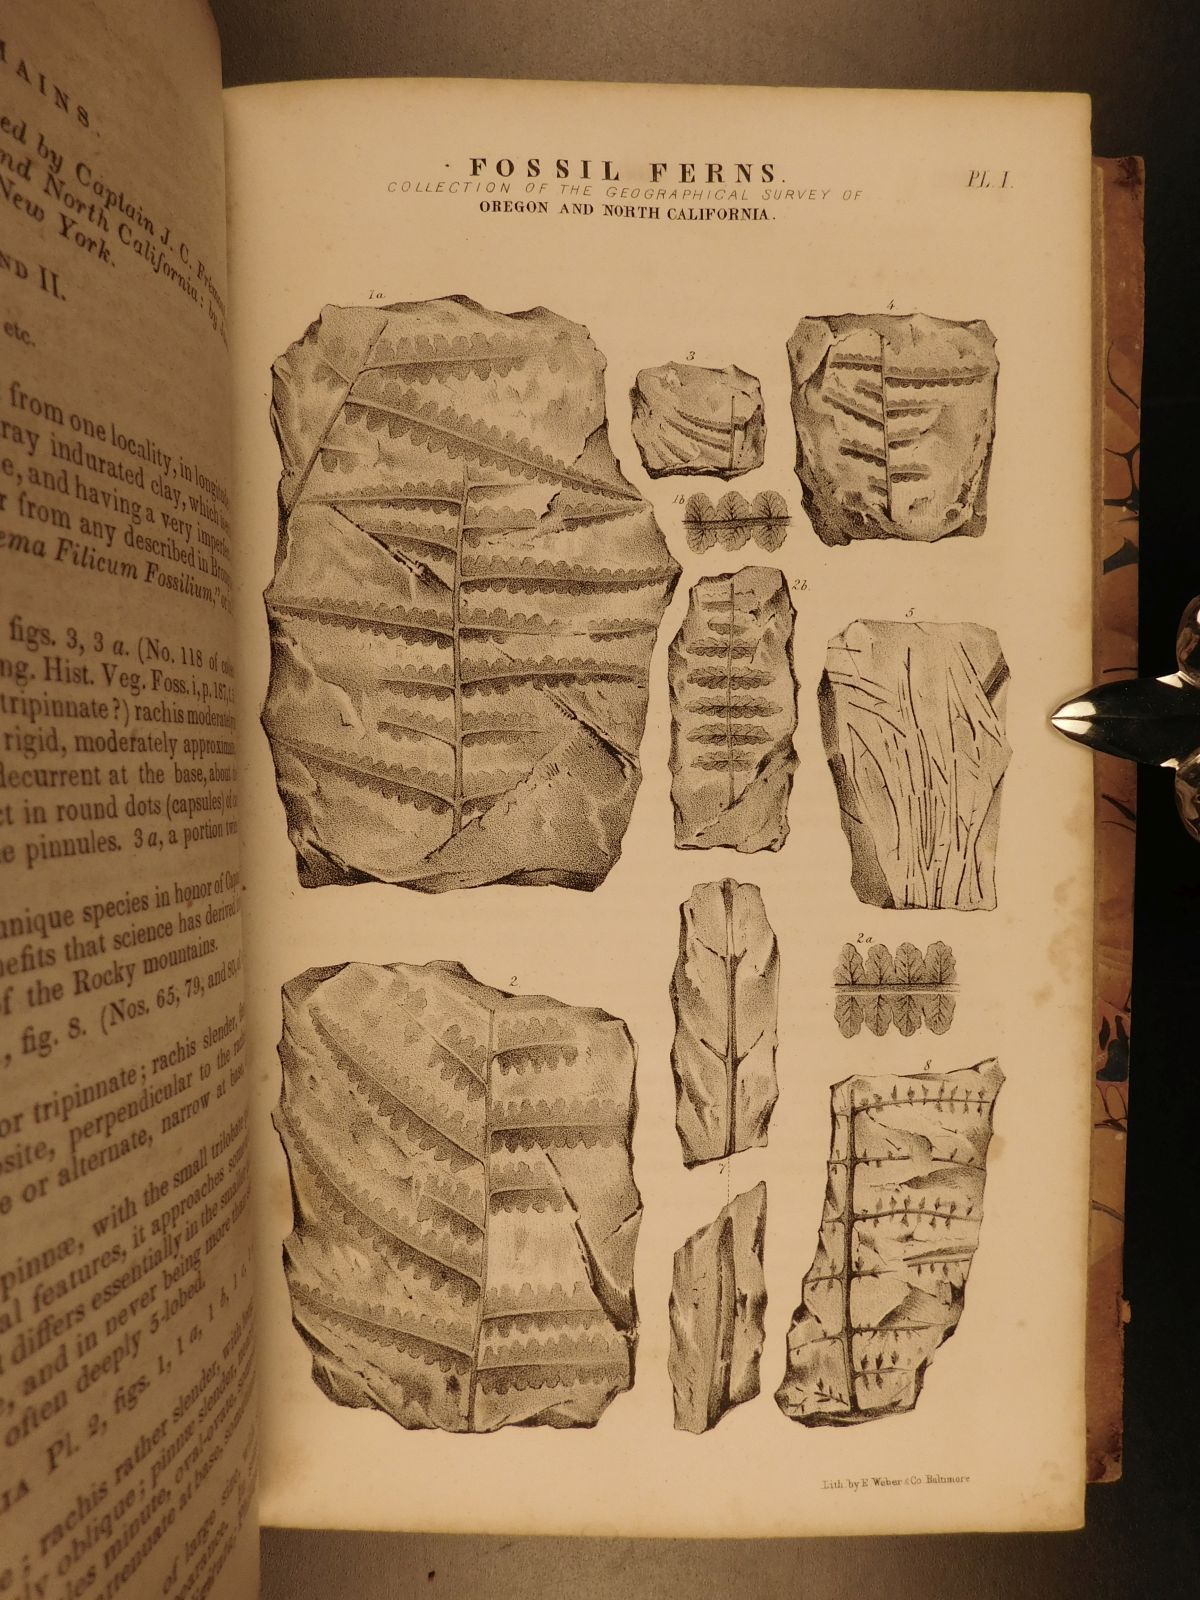 MAINS.
ed by Captain J. C. Frémont
nd North California: by J.
New York.
ND II.
etc.
from one locality, in longitude
ray indurated clay, which
e, and having a very imperfect
r from any described in
ema Filicum Fossilium," or
figs. 3, 3 a. (No. 118 of
ng. Hist. Veg. Foss. i, p. 187,
tripinnate?) rachis moderately
rigid, moderately approximate
decurrent at the base, about
ct in round dots (capsules) of
e pinnules. 3 a, a portion
unique species in honor of
nefits that science has derived
of the Rocky mountains.
., fig. 8. (Nos. 65, 79, and 80, of
or tripinnate; rachis slender,
osite, perpendicular to the
e or alternate, narrow at base
pinnæ, with the small trilobate
al features, it approaches
t differs essentially in the smaller
, and in never being more than
often deeply 5-lobed.
IA Pl. 2, figs. 1, 1 a, 1 b,
; rachis rather slender, with
ly oblique; pinnæ slender,
les minute, oval-ovate,
attenuate at base,
of large size,
FOSSIL FERNS.
PL. I.
COLLECTION OF THE GEOGRAPHICAL SURVEY OF
OREGON AND NORTH CALIFORNIA.
1a
4
3
1b
2b.
5
2a
2
8
7
Lith. by E. Weber & Co. Baltimore